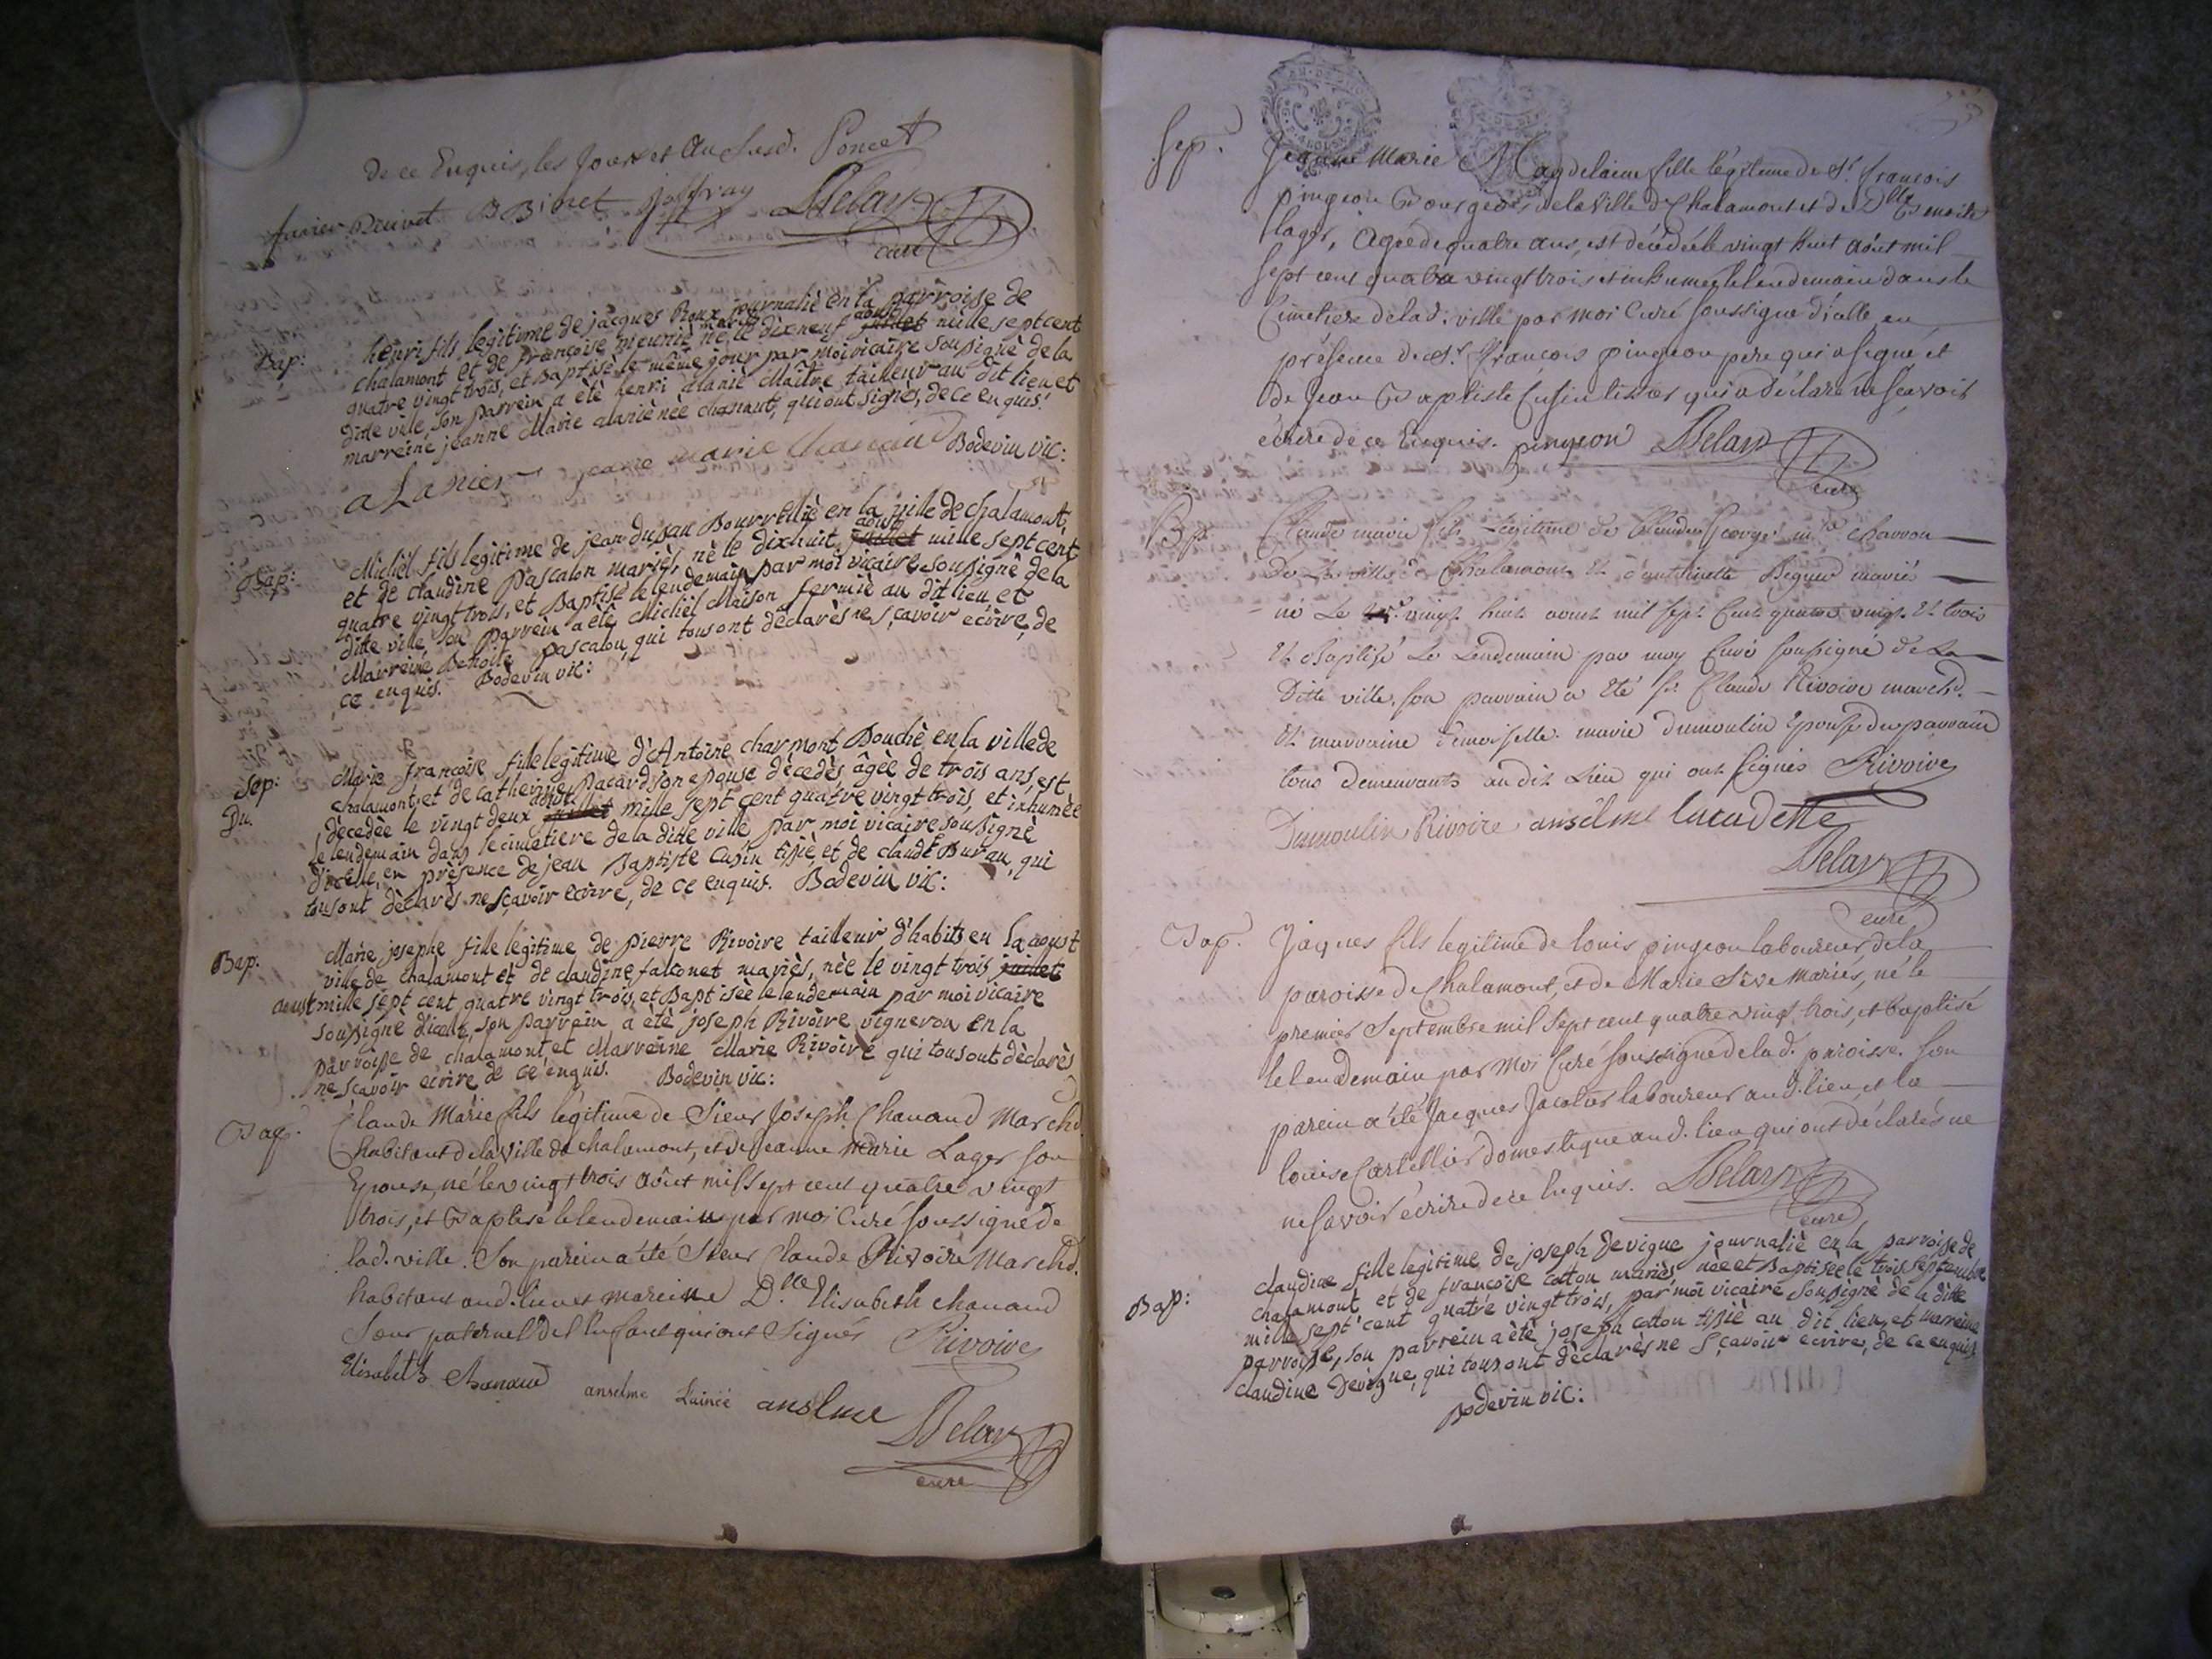 de ce Enquis, les Jours et An susd. Poncet
Danivet B Binet Joffray Delarv
curé
Bap:
henri fils legitime de jacques Roux journalié en la parroisse de
chalamont et de françoise meunié mariés né le dixneuf juillet aoust mille sept cent
quatre vingt trois, et Baptisé le même jour par moi vicaire sousigné de la
ditte ville, son parrein a été henri alanié Maître tailleur au dit lieu et
marreine jeanne Marie alanié née chanaut, qui ont signés, de ce enquis.
a Lanier jeane marie chanaud Bodevin vic:
Bap:
Michiel fils legitime de jean dusau Bourrellié en la ville de chalamont,
et de claudine Pascalon mariés, né le dixhuit juillet aoust mille sept cent
quatre vingt trois, et Baptisé le lendemain par moi vicaire sousigné de la
ditte ville, son parrein a été Michiel Maison fermié au dit lieu et
Marreine Benoite pascalon, qui tous ont déclarés ne sçavoir ecrire, de
ce enquis. Bodevin vic:
Sep:
Du.
Marie françoise fille legitime d'Antoine charmont Bouché en la ville de
chalamont, et de catherine Pacard son epouse décedés âgée de trois ans, est
décedée le vingt deux juillet aout mille sept cent quatre vingt trois, et inhumée
le lendemain dans le cimetiere de la ditte ville par moi vicaire sousigné
d'icelle, en présence de jean Baptiste Cusin tissié et de claude Buran, qui
tous ont déclarés ne sçavoir ecrire, de ce enquis. Bodevin vic:
Bap.
Marie josephe fille legitime de pierre Rivoire tailleur d'habits en La aoust
ville de chalamont et de claudine falconet mariés, née le vingt trois juillet
aoust mille sept cent quatre vingt trois, et Baptisée le lendemain par moi vicaire
sousigné d'icelle, son parrein a été joseph Rivoire vigneron en la
parroisse de chalamont, et Marreine Marie Rivoire qui tous ont déclarés
ne sçavoir ecrire de ce enquis. Bodevin vic:
Bap.
Claude Marie fils légitime de Sieur Joseph Chanaud Marchd.
habitant de la Ville de chalamont, et de Jeanne Marie Lager son
Epouse, né le vingt trois août mil Sept cent quatre vingt
trois, et Baptisé le lendemain par moi Curé soussigné de
lad. ville. Son parein a été Sieur Claude Rivoire Marchd.
habitant aud. lieu et mareine D.lle Elisabeth chanaud
Sœur paternel de l'enfant qui ont Signés Rivoire
Elisabeth Chanaud anselme Lainée anselme
Delarv
curé
Sep.
Jeanne Marie Magdelaine fille légitime de Sr. françois
pingeon Bourgeois de la Ville de Chalamont et de Dlle Benoite
lager, Agée de quatre ans, est décédée le vingt huit août mil
sept cent quatre vingt trois et inhumée le lendemain dans le
Cimetiere de lad. ville par moi Curé soussigné d'icelle en
présence de Sr. françois pingeon pere qui a signé et
de Jean Baptiste Cusin tissier qui a déclaré ne sçavoir
écrire de ce Enquis. pingeon Delarv
curé
Bp.
Claude marie fils Légitime de Claude George me. charron
De La ville de Chalamont Et d'antoinette Beguet mariés
né Le vingt huit aoust mil sept Cent quatre vingt Et trois
Et Baptisé Le Lendemain par moy Curé sousigné de La
Ditte ville. son parrain a Eté sr. Claude Rivoire marchd.
Et marraine demoiselle marie dumoulin Epouse du parrain
tous demeurants au dit Lieu qui ont signés Rivoire
Dumoulin Rivoire anselme lacadette
Delarv
curé
Bap.
Jaques fils legitime de louis pingeon laboureur de la
paroisse de Chalamont, et de Marie Sève Mariés, né le
premier Septembre mil Sept cent quatre vingt trois, et baptisé
le lendemain par Moi Curé soussigné de lad. paroisse. Son
parein a été Jacques Jacolier laboureur aud. lieu, et la
louise Cartellier domestique aud. lieu qui ont déclarés ne
ne savoir écrire de ce Enquis. Delarv
curé
Bap:
claudine fille legitime de joseph Devigne journalié en la parroisse de
chalamont et de françoise cotton mariés, née et Baptisée le trois septembre
mille sept cent quatre vingt trois, par moi vicaire sousigné de la ditte
parroisse, son parrein a été joseph cotton tissié au dit lieu, et marreine
claudine Devigne, qui tous ont déclarés ne sçavoir ecrire, de ce enquis
Bodevin vic: